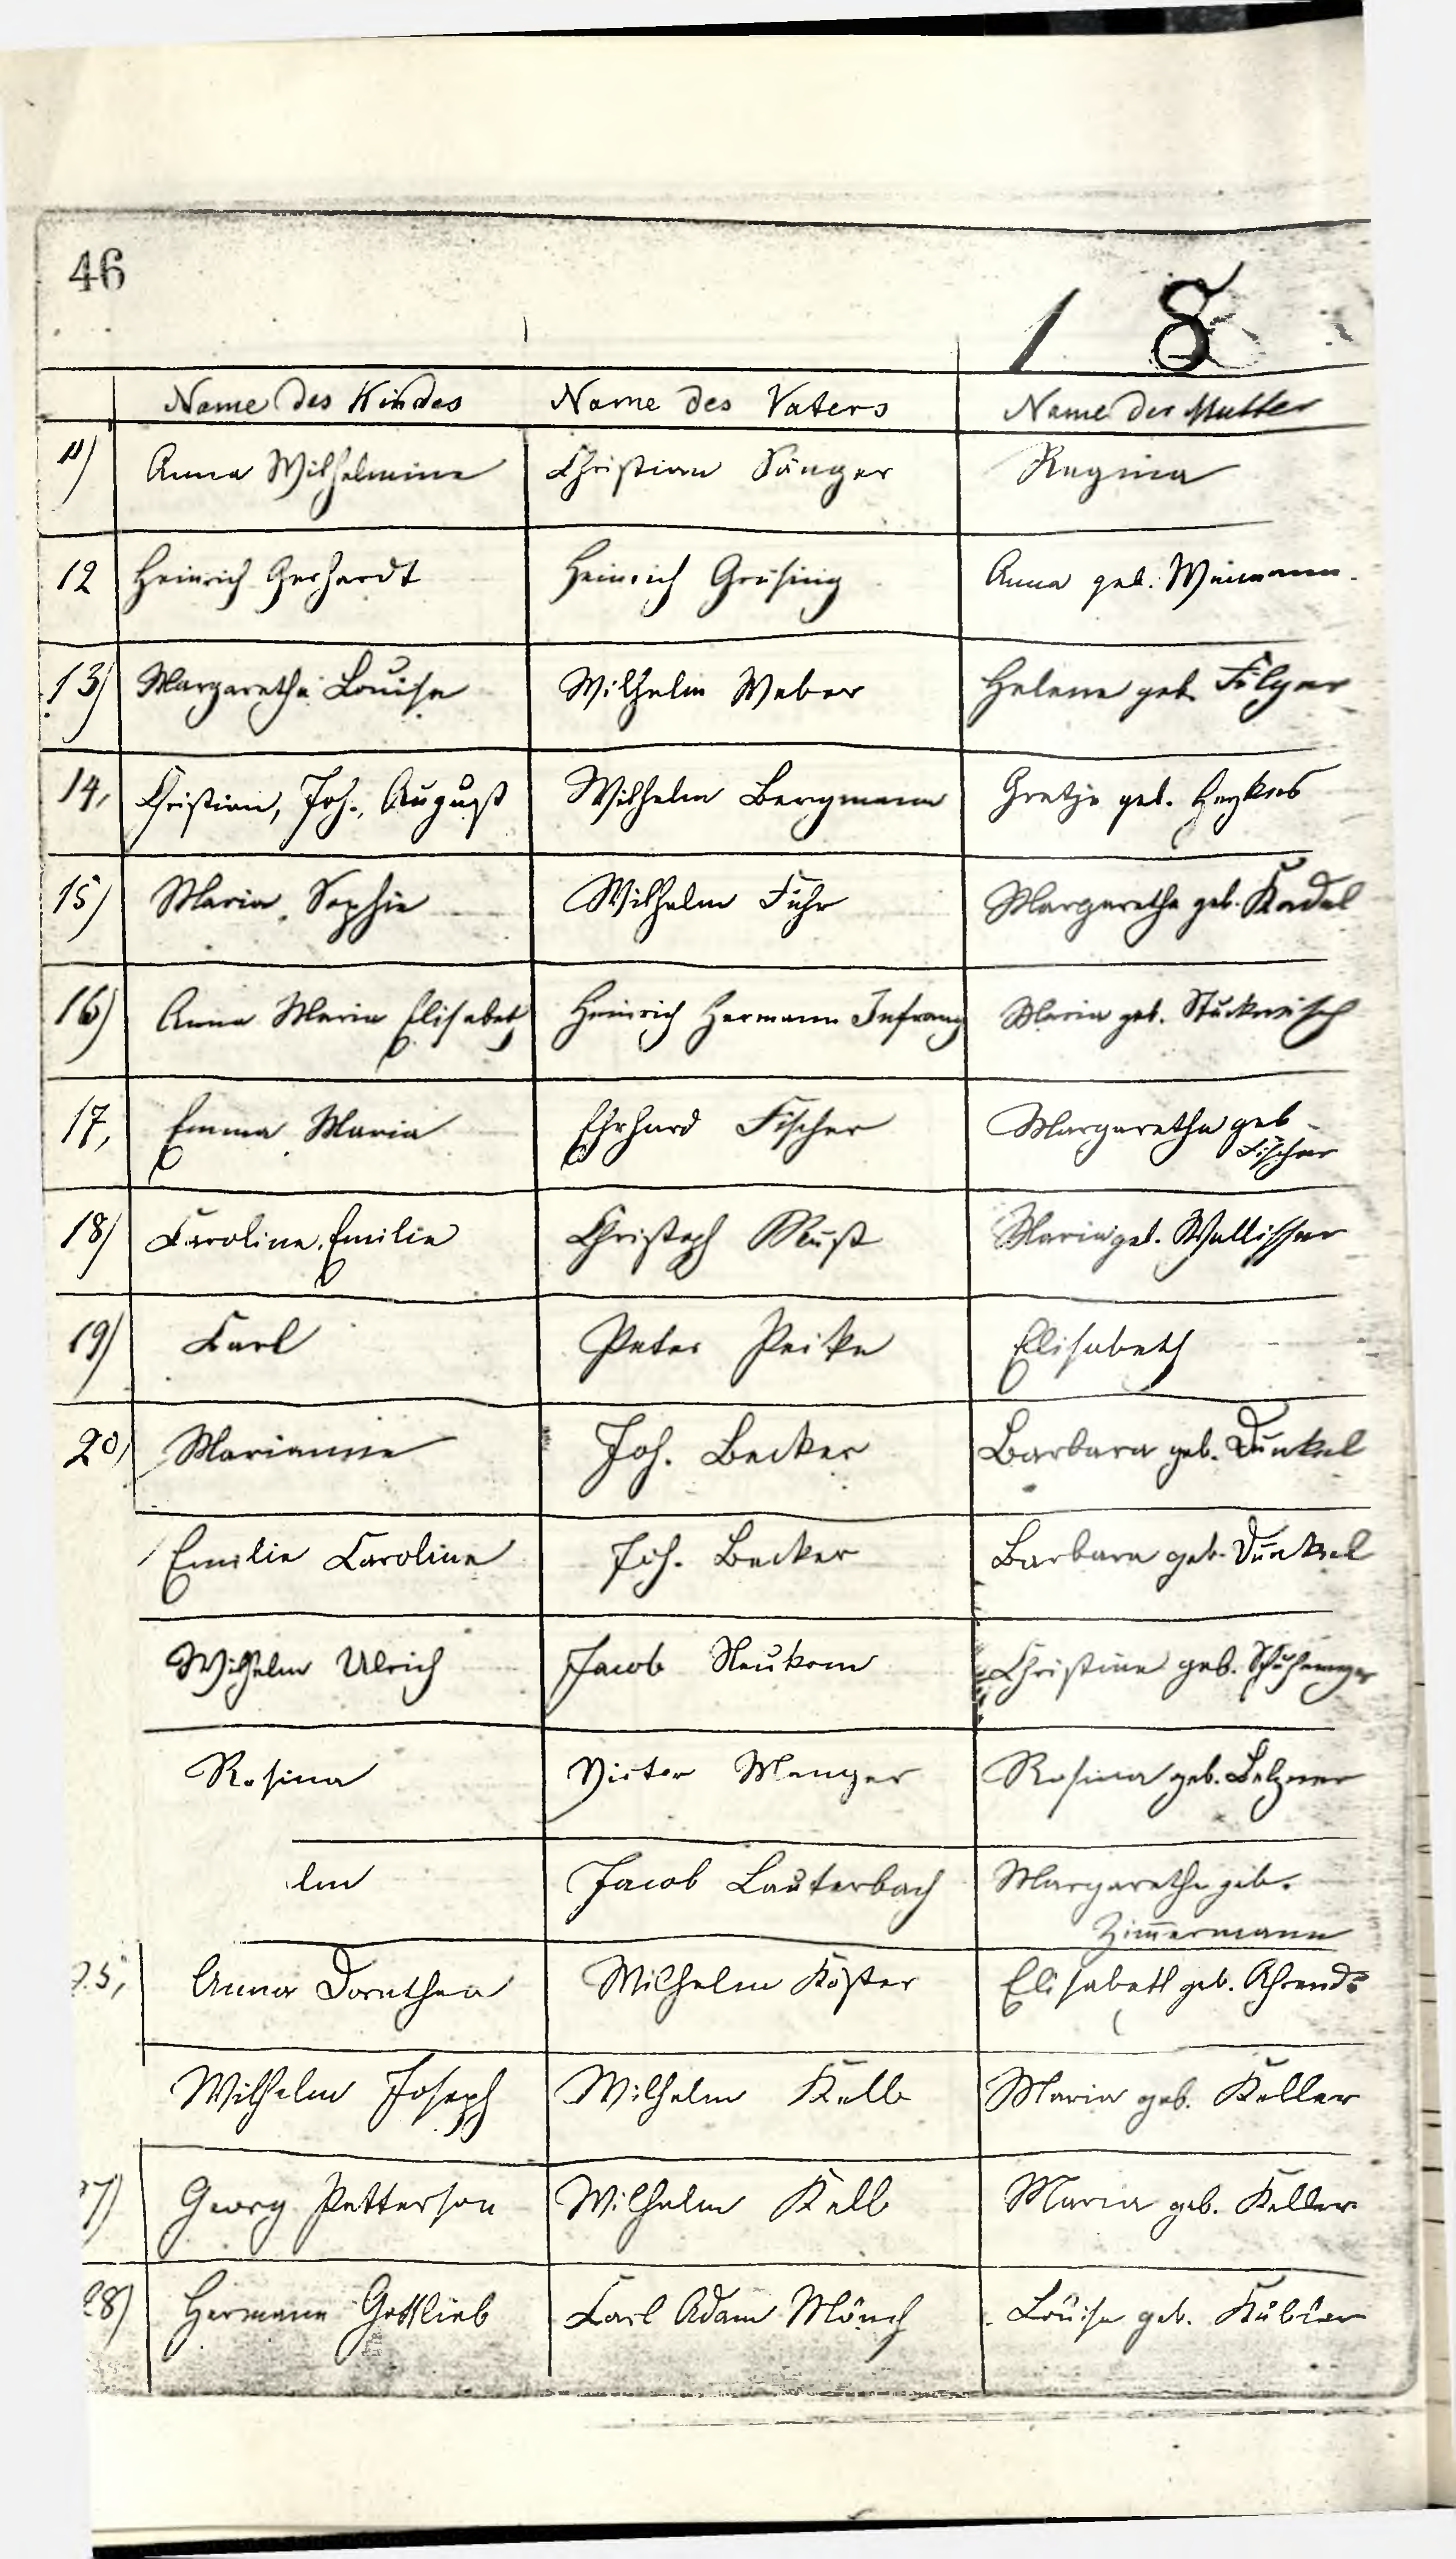 46
1 8
Name des Kindes Name des Vaters Name der Mutter
11) Anna Wilhelmine Christian Sänger Regina
12 Heinrich Gerhardt Heinrich Grüsing Anna geb.
13) Margarethe Louise Wilhelm Weber Helene geb. Filger
14, Christian, Joh., August Wilhelm Bergmann Gretje geb.
15) Maria Sophie Wilhelm Führ Margaretha geb. Kadel
16) Anna Maria Elisabeth Heinrich Hermann Infrang Maria geb. Stuckwisch
17, Emma Maria Ehrhard Fischer Margaretha geb
Fischer
18) Caroline Emilie Christoph Rust Maria geb. Wallisser
19) Carl Peter Peike Elisabeth
20) Marianne Joh. Becker Barbara geb. Dunkel
Emilie Caroline Joh. Becker Barbara geb. Dunkel
Wilhelm Ulrich Jacob Neukom Christine geb.
Rosina Victor Menger Rosina geb. Belzner
lm Jacob Lauterbach Margarethe geb.
Zim̄ermann
25, Anna Dorothea Wilhelm Köster Elisabeth geb. Ahrends
Wilhelm Joseph Wilhelm Kelb Maria geb. Keller
7) Georg Petterson Wilhelm Kelb Maria geb. Keller
28) Hermann Gottlieb Carl Adam Mönch Louise geb. Kübler